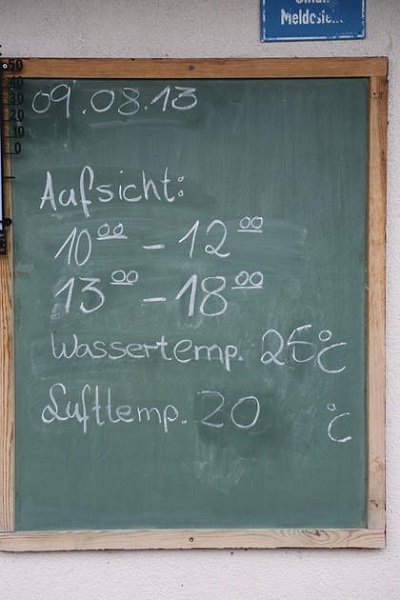 Meldestelle
50
30
20
10
0
09.08.13
Aufsicht:
10⁰⁰ – 12⁰⁰
13⁰⁰ – 18⁰⁰
Wassertemp. 25°C
Lufttemp. 20 °C